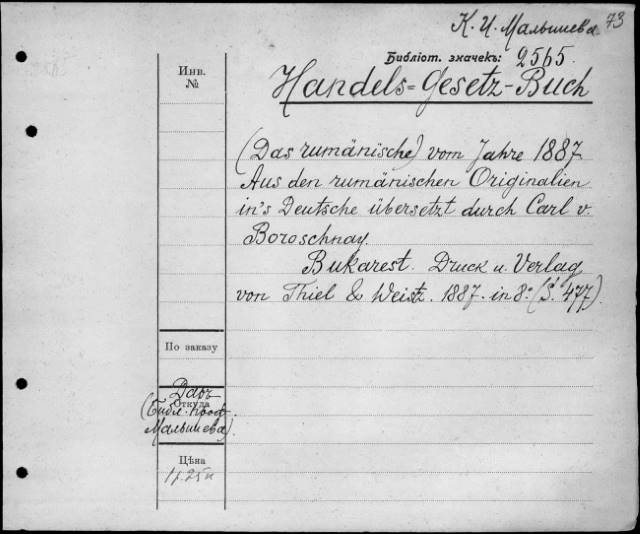 К. И. Малышева. 73
Библіот. значекъ: 2565.
Инв.
№
Handels=Gesetz-Buch
(Das rumänische) vom Jahre 1887
Aus den rumänischen Originalien
in's Deutsche übersetzt durch Carl v.
Boroschnay.
Bukarest. Druck u. Verlag
von Thiel & Weisz. 1887. in 8º (S. 477).
По заказу
Даръ
Откуда
(Библ. проф.
Малышева).
Цѣна
1 р. 25 к